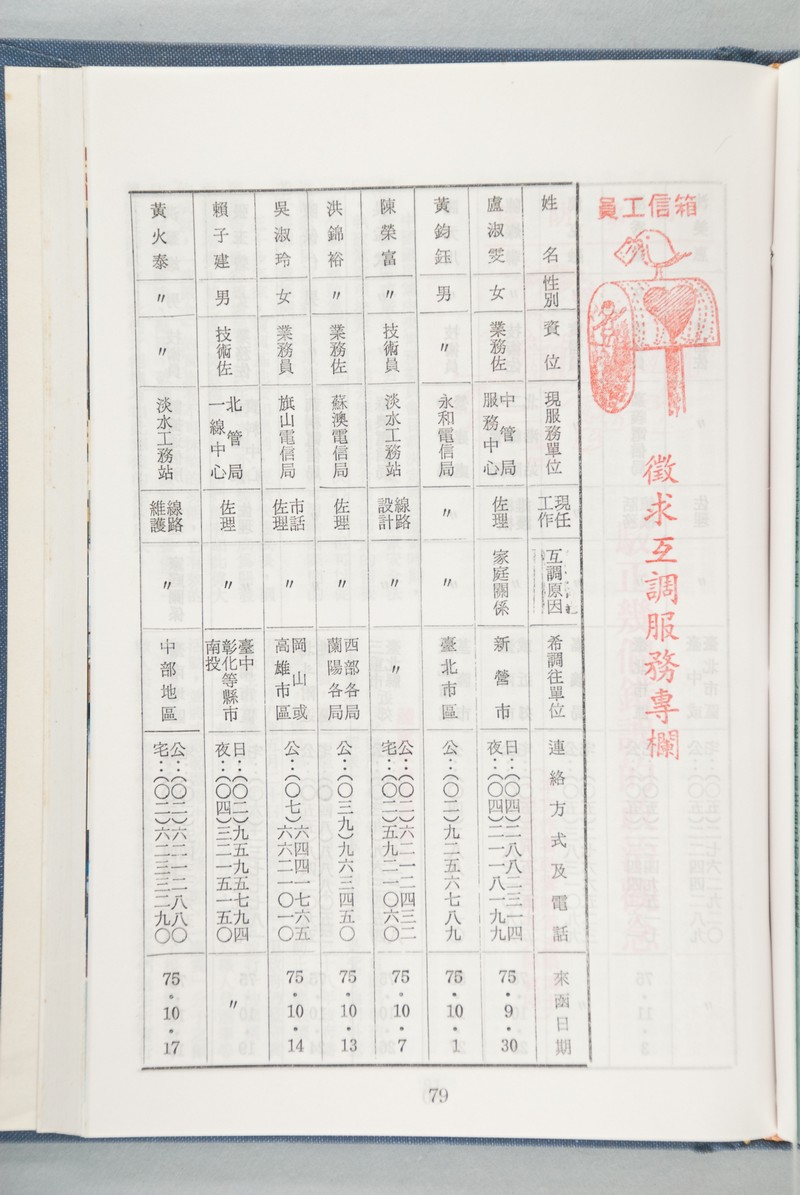 員工信箱
徵求互調服務專欄
姓名 性別 資位 現服務單位 現任工作 互調原因 希調往單位 連絡方式及電話 來函日期
盧淑雯 女 業務佐 中管局服務中心 佐理 家庭關係 新營市 日：(〇四)二八八二三一四 夜：(〇四)二一一八一九九 75・9・30
黃鈞鈺 男 〃 永和電信局 〃 〃 臺北市區 公：(〇二)九二五六七八九 75・10・1
陳榮富 〃 技術員 淡水工務站 線路設計 〃 〃 公：(〇二)六二一二四三二 宅：(〇二)五九二一〇六〇 75・10・7
洪錦裕 〃 業務佐 蘇澳電信局 佐理 〃 西部各局蘭陽各局 公：(〇三九)九六三四五〇 75・10・13
吳淑玲 女 業務員 旗山電信局 市話佐理 〃 岡山或高雄市區 公：(〇七)六四四一七六五 六六二一〇一〇 75・10・14
賴子建 男 技術佐 北管局一線中心 佐理 〃 臺中彰化南投等縣市 日：(〇二)九五九五七九四 夜：(〇四)三二一五一五〇 〃
黃火泰 〃 〃 淡水工務站 線路維護 〃 中部地區 公：(〇二)六二一二八八〇 宅：(〇二)六二三三二九〇 75・10・17
79